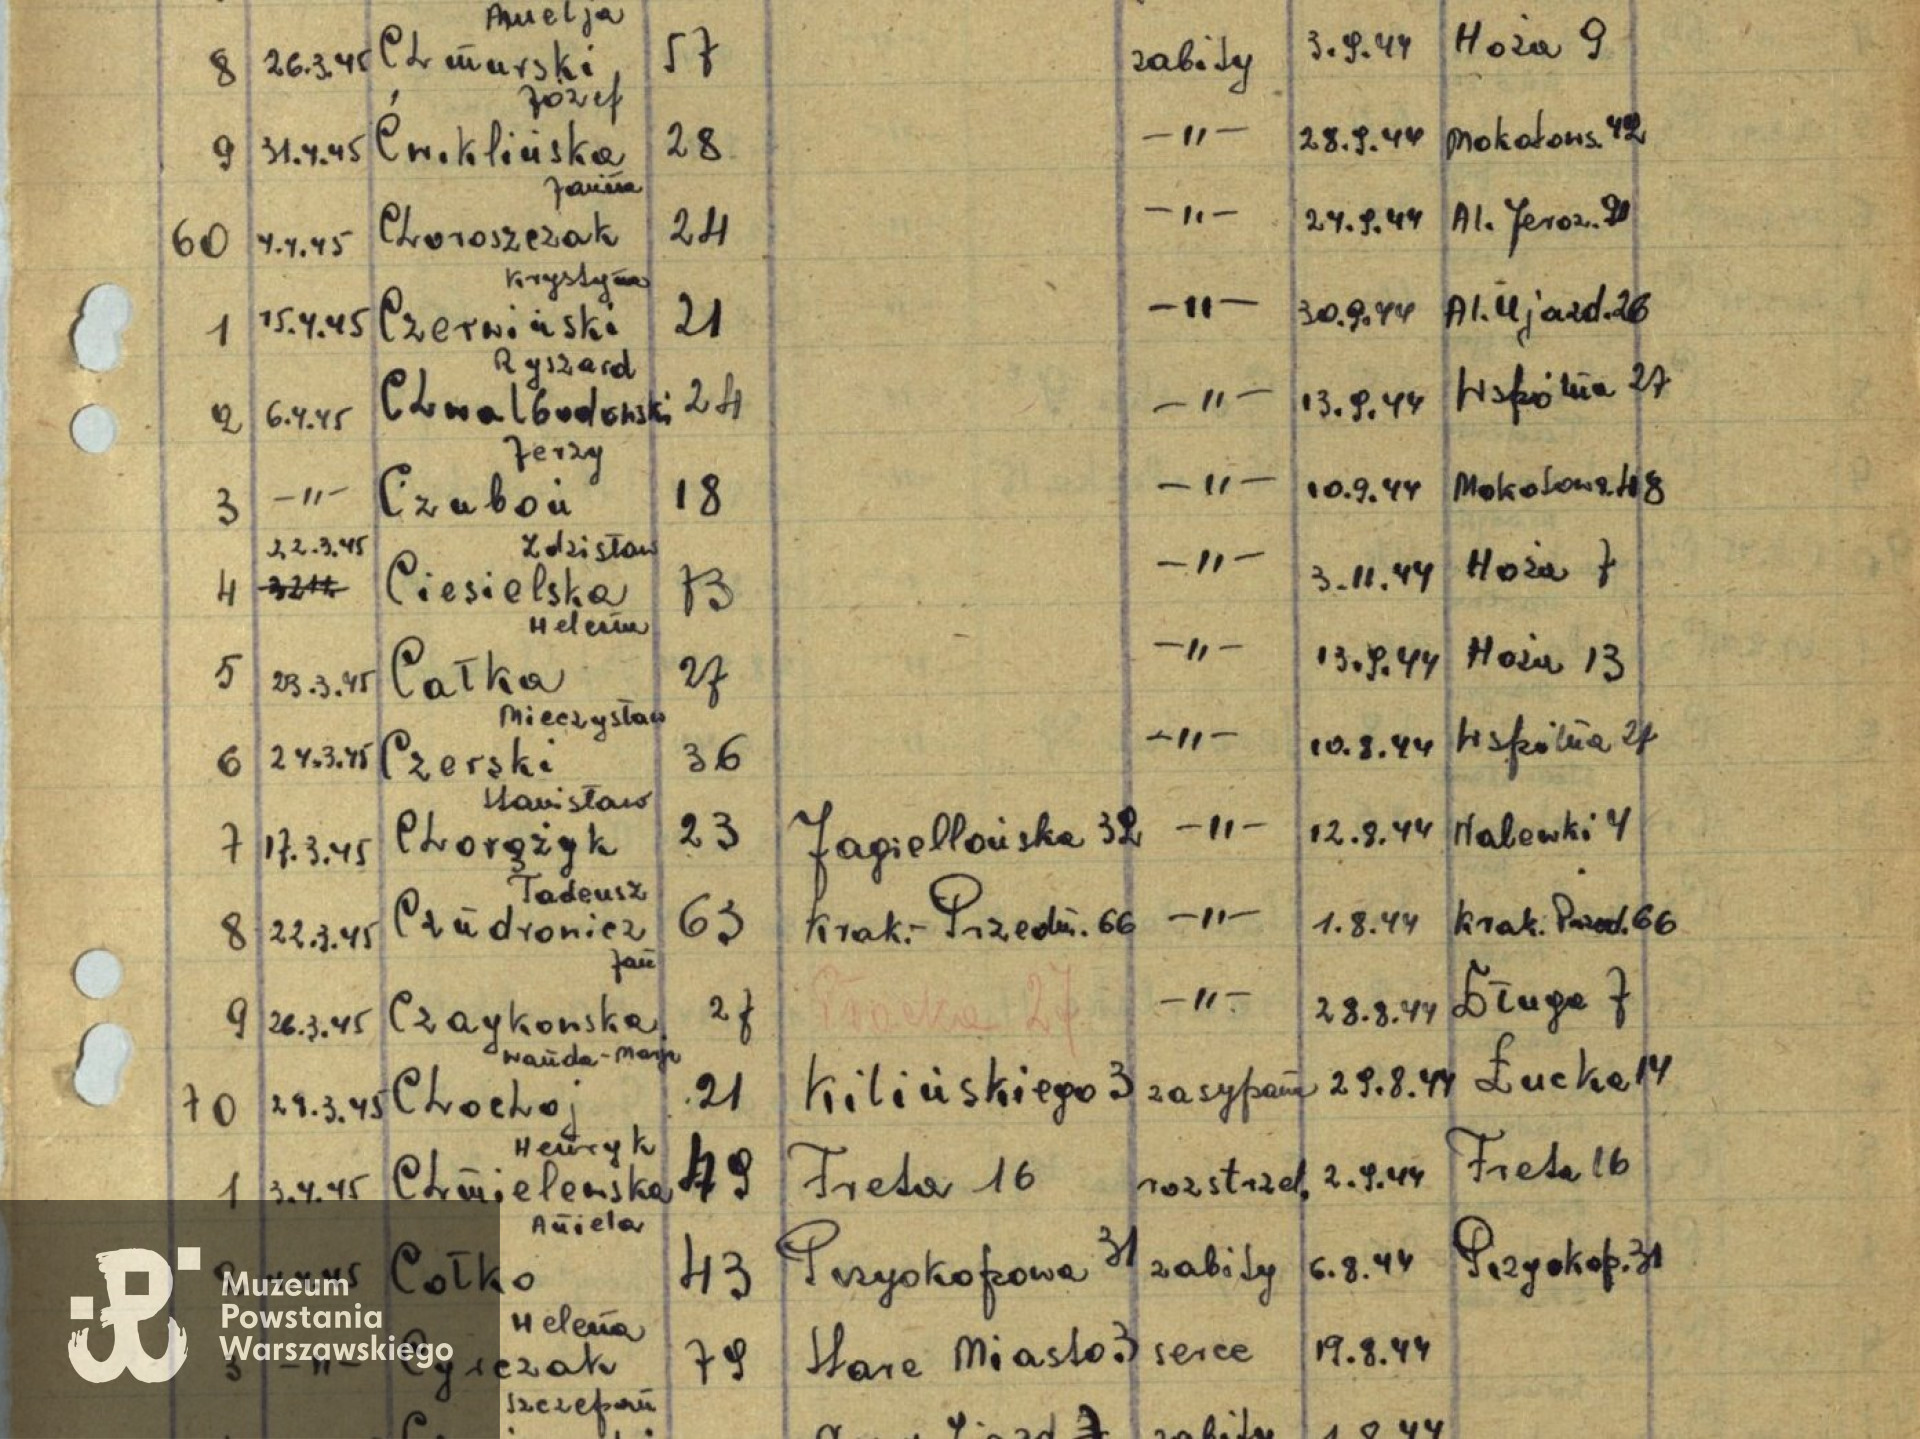 Amelja
8 26.3.45 Chmurski 57 zabity 3.9.44 Hoża 9
Józef
9 31.4.45 Ćwiklińska 28 —"— 28.9.44 Mokotows. 42
Janina
60 4.4.45 Choroszczak 24 —"— 24.9.44 Al. Jeroz.
Krystyna
1 15.4.45 Czerwiński 21 —"— 30.9.44 Al. Ujazd. 26
Ryszard
2 6.4.45 Chwalbodowski 24 —"— 13.9.44 Wspólna 27
Jerzy
3 —"— Czuboń 18 —"— 10.9.44 Mokotows. 48
22.3.45 Zdzisław
4 Ciesielska 73 —"— 3.11.44 Hoża 7
Helena
5 23.3.45 Całka 27 —"— 13.9.44 Hoża 13
Mieczysław
6 24.3.45 Czerski 36 —"— 10.8.44 Wspólna 27
Stanisław
7 17.3.45 Chorążyk 23 Jagiellońska 32 —"— 12.8.44 Nalewki 4
Tadeusz
8 22.3.45 Czudronicz 63 Krak.- Przedm. 66 —"— 1.8.44 Krak. Przed. 66
Jan
9 26.3.45 Czaykowska 27 Trocka 27 —"— 28.8.44 Długa 7
Wanda-Marja
70 29.3.45 Chochoj 21 Kilińskiego 3 zasypan 29.8.44 Łucka 14
Henryk
1 3.4.45 Chmielewska 49 Freta 16 rozstrzel. 2.9.44 Freta 16
Aniela
2 Cołko 43 Przyokopowa 31 zabity 6.8.44 Przyokop. 31
Helena
3 —"— Cyrczak 79 Stare Miasto 3 serce 19.8.44
Szczepan
zabity 1.8.44
Muzeum
Powstania
Warszawskiego